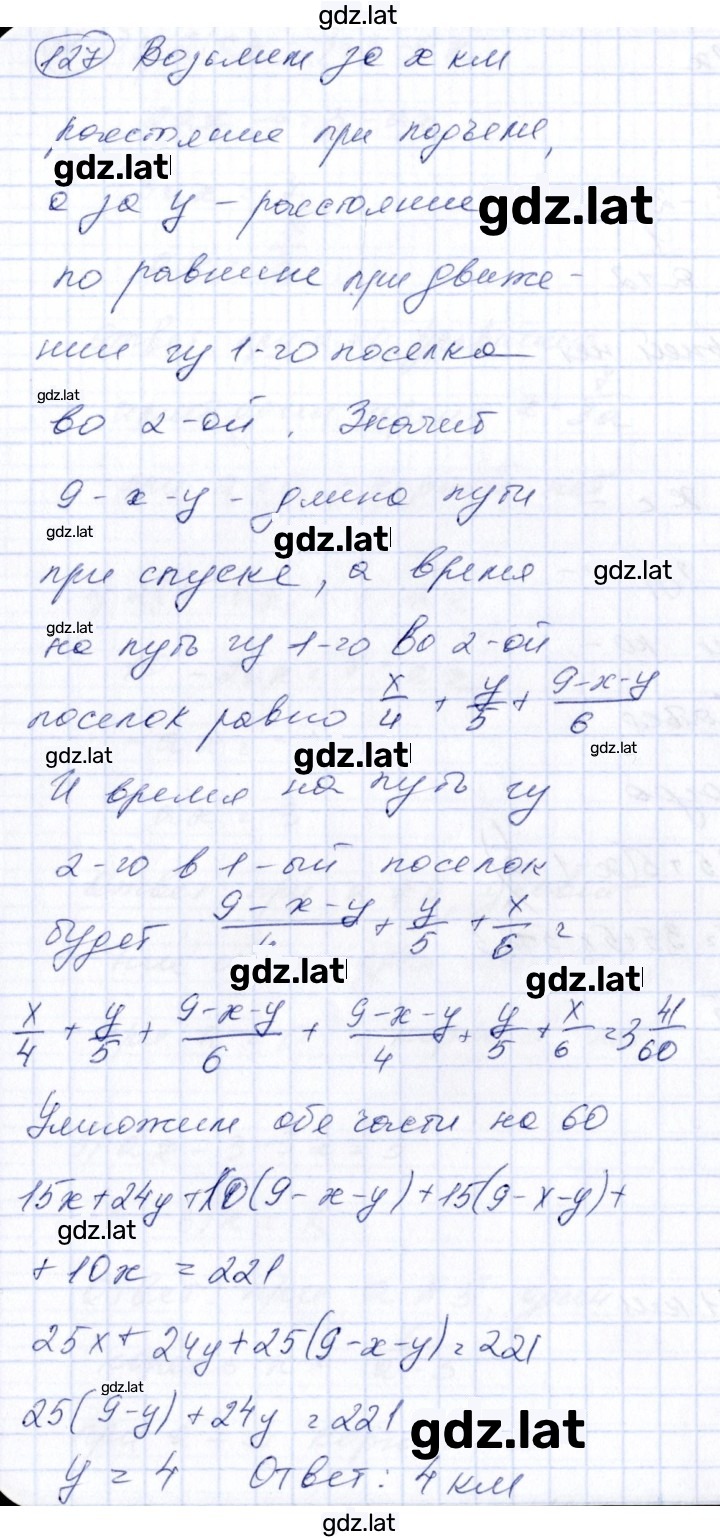 gdz.lat
127 Возьмем за x км
расстояние при подъеме,
gdz.lat
а за y - расстояние gdz.lat
по равнине при движе-
нии из 1-го поселка
gdz.lat
во 2-ой. Значит
9-x-y - длина пути
gdz.lat gdz.lat
при спуске, а время gdz.lat
gdz.lat
на путь из 1-го во 2-ой
поселок равно x/4 + y/5 + (9-x-y)/6
gdz.lat gdz.lat gdz.lat
И время на путь из
2-го в 1-ый поселок
будет (9-x-y)/4 + y/5 + x/6 =
gdz.lat gdz.lat
x/4 + y/5 + (9-x-y)/6 + (9-x-y)/4 + y/5 + x/6 = 3 41/60
Умножим обе части на 60
15x+24y+10(9-x-y)+15(9-x-y)+
gdz.lat
+10x = 221
25x+24y+25(9-x-y)=221
gdz.lat
25(9-y)+24y=221
gdz.lat
y = 4 Ответ: 4 км
gdz.lat